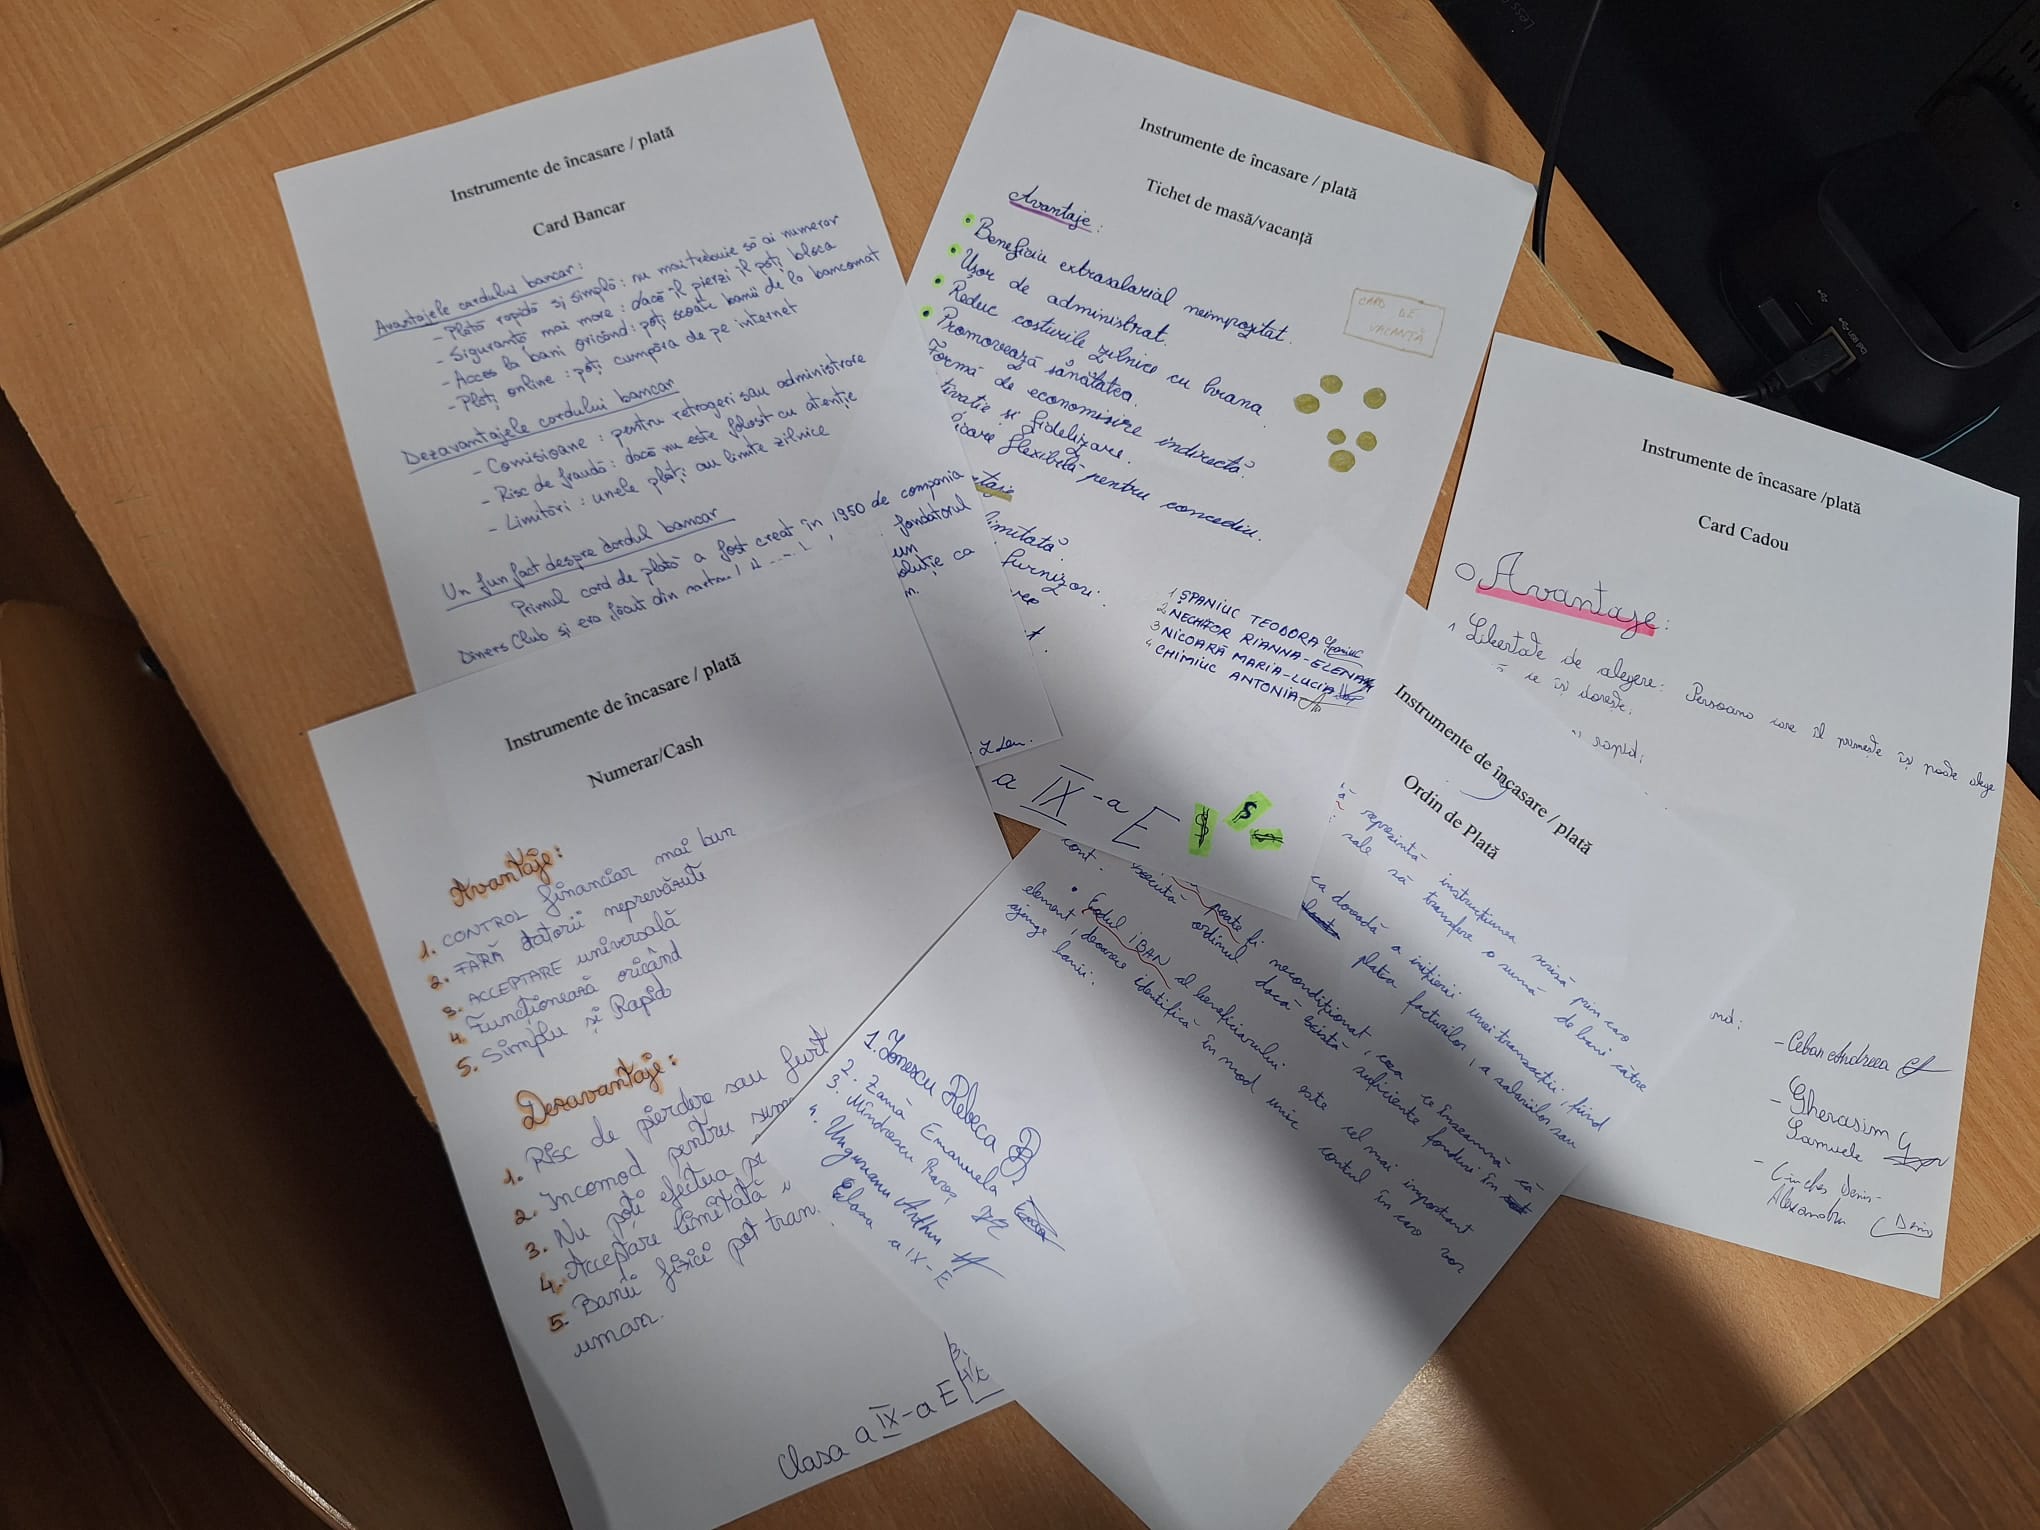 Instrumente de încasare / plată
Card Bancar
Avantajele cardului bancar:
- Plată rapidă și simplă: nu mai trebuie să ai numerar
- Siguranță mai mare: dacă-l pierzi îl poți bloca
- Acces la bani oricând: poți scoate banii de la bancomat
- Plăți online: poți cumpăra de pe internet
Dezavantajele cardului bancar
- Comisioane: pentru retrageri sau administrare
- Risc de fraudă: dacă nu este folosit cu atenție
- Limitări: unele plăți au limite zilnice
Un fun fact despre cardul bancar
Primul card de plată a fost creat în 1950 de compania
Diners Club și era făcut din
fondatorul
un
ca
Instrumente de încasare / plată
Tichet de masă/vacanță
Avantaje:
• Beneficiu extrasalarial neimpozitat.
• Ușor de administrat.
• Reduc costurile zilnice cu hrana
• Promovează sănătatea.
Formă de economisire indirectă.
și fidelizare.
flexibilă pentru concediu.
furnizori.
CARD DE
VACANȚĂ
1 ȘPANIUC TEODORA
2 NECHIFOR RIANNA-ELENA
3 NICOARĂ MARIA-LUCIA
4 CHIMIUC ANTONIA
a IX-a E $ $ $
Instrumente de încasare /plată
Card Cadou
Avantaje:
1 Libertate de alegere: Persoana care îl primește își poate alege
ce își dorește;
rapid;
- Ceban Andreea
- Gherasim
Samuele
- Denis-
Alexandru
Instrumente de încasare / plată
Numerar/Cash
Avantaje:
1. CONTROL financiar mai bun
2. FĂRĂ datorii neprevăzute
3. ACCEPTARE universală
4. Funcționează oricând
5. Simplu și Rapid
Dezavantaje:
1. Risc de pierdere sau furt
2. Incomod pentru sume
3. Nu poți efectua
4. Acceptare limitată
5. Banii fizici pot
uman.
Clasa a IX-a E
Instrumente de încasare / plată
Ordin de Plată
reprezintă instrucțiunea scrisă prin care
sale să transfere o sumă de bani către
ca dovadă a inițierii unei tranzacții, fiind
plata facturilor, a salariilor sau
poate fi necondiționat, ceea ce înseamnă că
cont. execută ordinul dacă există suficiente fonduri în
• Codul IBAN al beneficiarului este cel mai important
element, deoarece identifică în mod unic contul în care vor
ajunge banii.
1. Ionescu Rebeca
2. Zamă Emanuela
3. Mîndrescu Rareș
4. Ungureanu Arthur
Clasa a IX-E